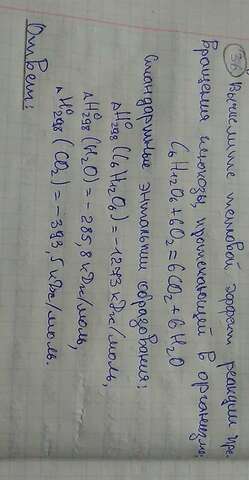 36 Вычислите тепловой эффект реакции пре-
вращения глюкозы, протекающей в организме:
C₆H₁₂O₆ + 6O₂ = 6CO₂ + 6H₂O
Стандартные энтальпии образования:
ΔH⁰₂₉₈ (C₆H₁₂O₆) = -1273 кДж/моль,
ΔH⁰₂₉₈ (H₂O) = -285,8 кДж/моль,
ΔH⁰₂₉₈ (CO₂) = -393,5 кДж/моль.
Ответ: